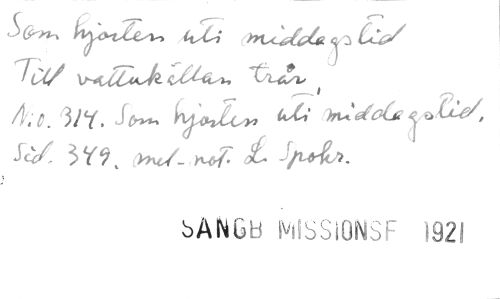 Som hjorten uti middagstid
Till vattukällan trår,
N:o. 314. Som hjorten uti middagstid.
Sid. 349. mel-not. L. Spohr.
SANGB MISSIONSF 1921